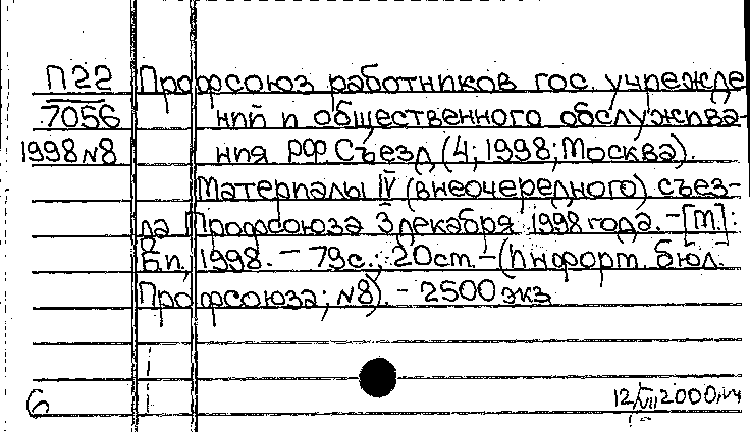 П22
7056
1998 №8
Профсоюз работников гос. учрежде
ний и общественного обслужива-
ния РФ. Съезд (4; 1998; Москва).
Материалы IV (внеочередного) съез-
да Профсоюза 3 декабря 1998 года. - [М.]:
Б.и., 1998. - 79с.; 20см. - (Информ. бюл.
Профсоюза; №8). - 2500 экз
6
12/VII 2000